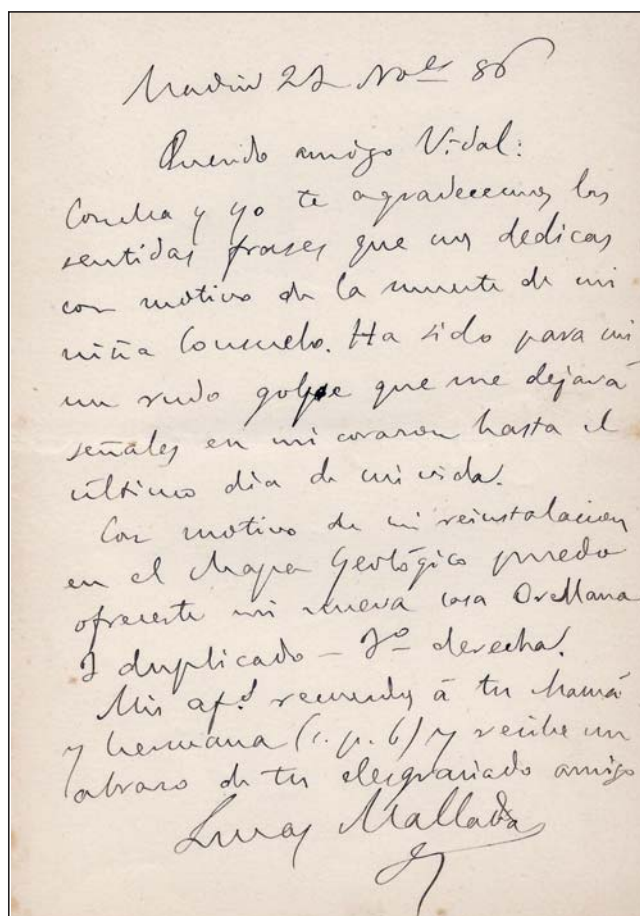 Madrid 22 Nobe 86
Querido amigo Vidal:
Concha y yo te agradecemos las
sentidas frases que nos dedicas
con motivo de la muerte de mi
niña Consuelo. Ha sido para mi
un rudo golpe que me dejará
señales en mi corazon hasta el
último dia de mi vida.
Con motivo de mi reinstalacion
en el Mapa Geológico puedo
ofrecerte mi nueva casa Orellana
duplicado – derecha.
Mis afs recuerdos á tu Mamá
y hermana (c. p. b) y recibe un
abrazo de tu desgraciado amigo
Lucas Mallada